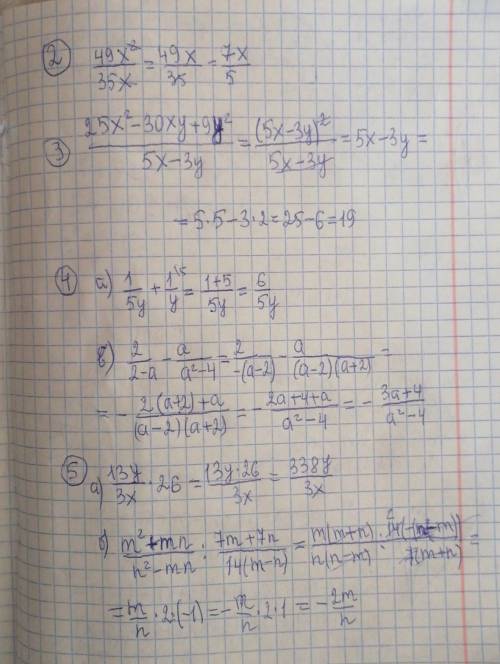 2 49x²/35x = 49x/35 = 7x/5
3 (25x²-30xy+9y²)/(5x-3y) = (5x-3y)²/(5x-3y) = 5x-3y =
= 5·5-3·2=25-6=19
4 а) 1/5y + 1\5/y = (1+5)/5y = 6/5y
в) 2/(2-a) - a/(a²-4) = 2/(-(a-2)) - a/((a-2)(a+2)) =
= - (2(a+2)+a)/((a-2)(a+2)) = - (2a+4+a)/(a²-4) = - (3a+4)/(a²-4)
5 а) 13y/3x · 26 = (13y·26)/3x = 338y/3x
б) (m²+mn)/(n²-mn) : (7m+7n)/(14(m-n)) = m(m+n)/(n(n-m)) · /(7(m+n)) =
= m/n · 2·(-1) = - m/n · 2·1 = - 2m/n